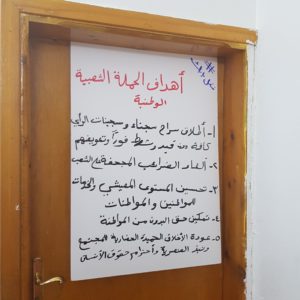 أهداف الحملة الشعبية
الوطنية
١- أطلاق سراح سجناء وسجينات الرأي
كافة من قيد وشرط فوراً وتعويضهم
٢- ألغاء الضرائب المجحفة على الشعب
٣- تحسين المستوى المعيشي والخدمات
للمواطنين والمواطنات
٤- تمكين حق البدون من المواطنة
٥- عودة الأخلاق الحميدة الحضارية للمجتمع
ونبذ العنصرية وأحترام حقوق الأنسان